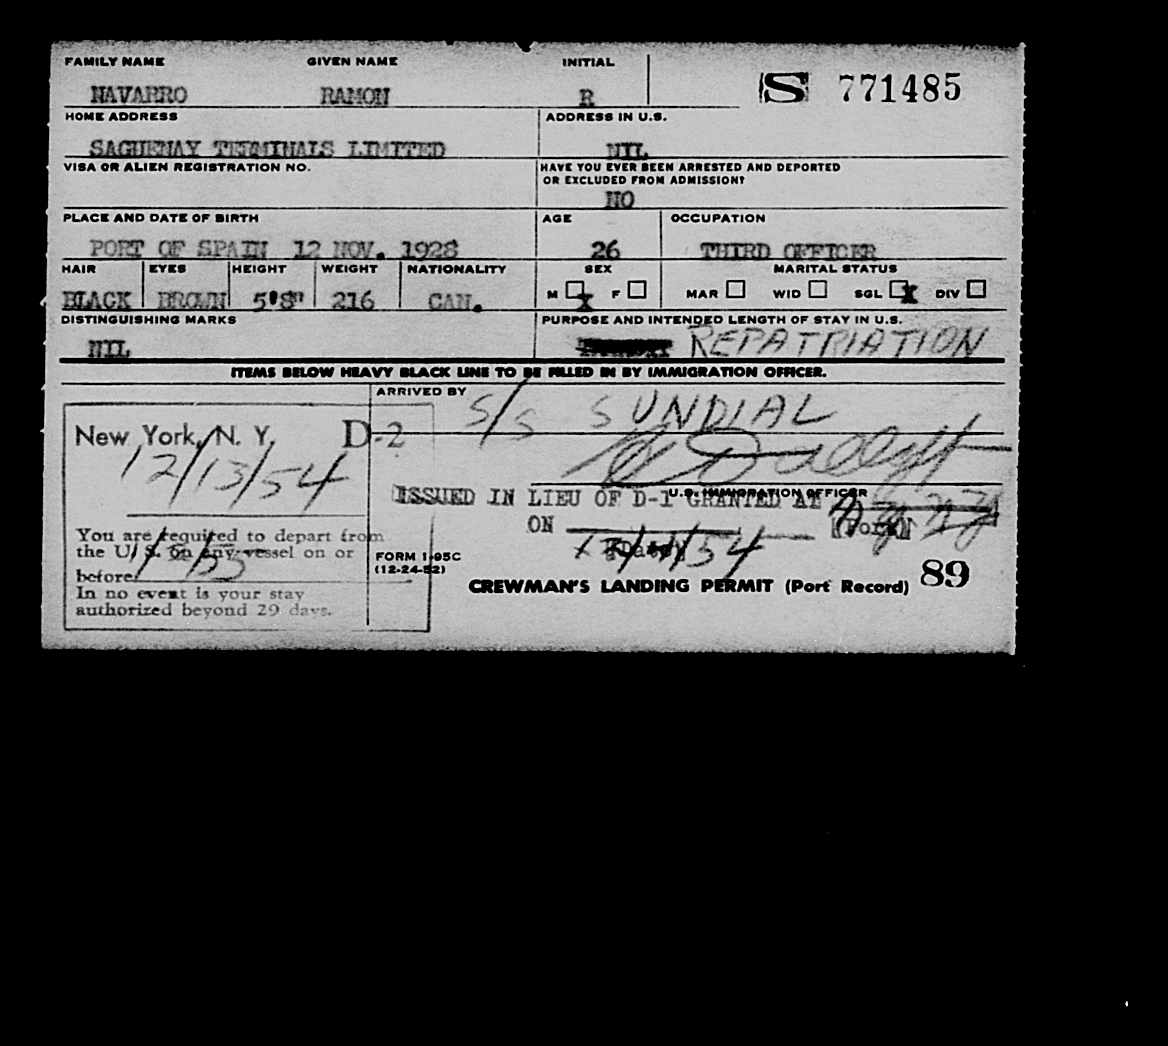 FAMILY NAME GIVEN NAME INITIAL
NAVARRO RAMON R S 771485
HOME ADDRESS ADDRESS IN U.S.
SAGUENAY TERMINALS LIMITED NIL
VISA OR ALIEN REGISTRATION NO. HAVE YOU EVER BEEN ARRESTED AND DEPORTED
OR EXCLUDED FROM ADMISSION?
NO
PLACE AND DATE OF BIRTH AGE OCCUPATION
PORT OF SPAIN 12 NOV. 1928 26 THIRD OFFICER
HAIR EYES HEIGHT WEIGHT NATIONALITY SEX MARITAL STATUS
BLACK BROWN 5'8" 216 CAN. M X F MAR WID SGL X DIV
DISTINGUISHING MARKS PURPOSE AND INTENDED LENGTH OF STAY IN U.S.
NIL REPATRIATION
ITEMS BELOW HEAVY BLACK LINE TO BE FILLED IN BY IMMIGRATION OFFICER.
ARRIVED BY S/S SUNDIAL
New York, N. Y. D-2
12/13/54
U.S. IMMIGRATION OFFICER
ISSUED IN LIEU OF D-1 GRANTED AT
ON (Port)
(Date)
You are required to depart from
the U. S. on any vessel on or
before
In no event is your stay
authorized beyond 29 days.
FORM I-95C
(12-24-52)
CREWMAN'S LANDING PERMIT (Port Record) 89